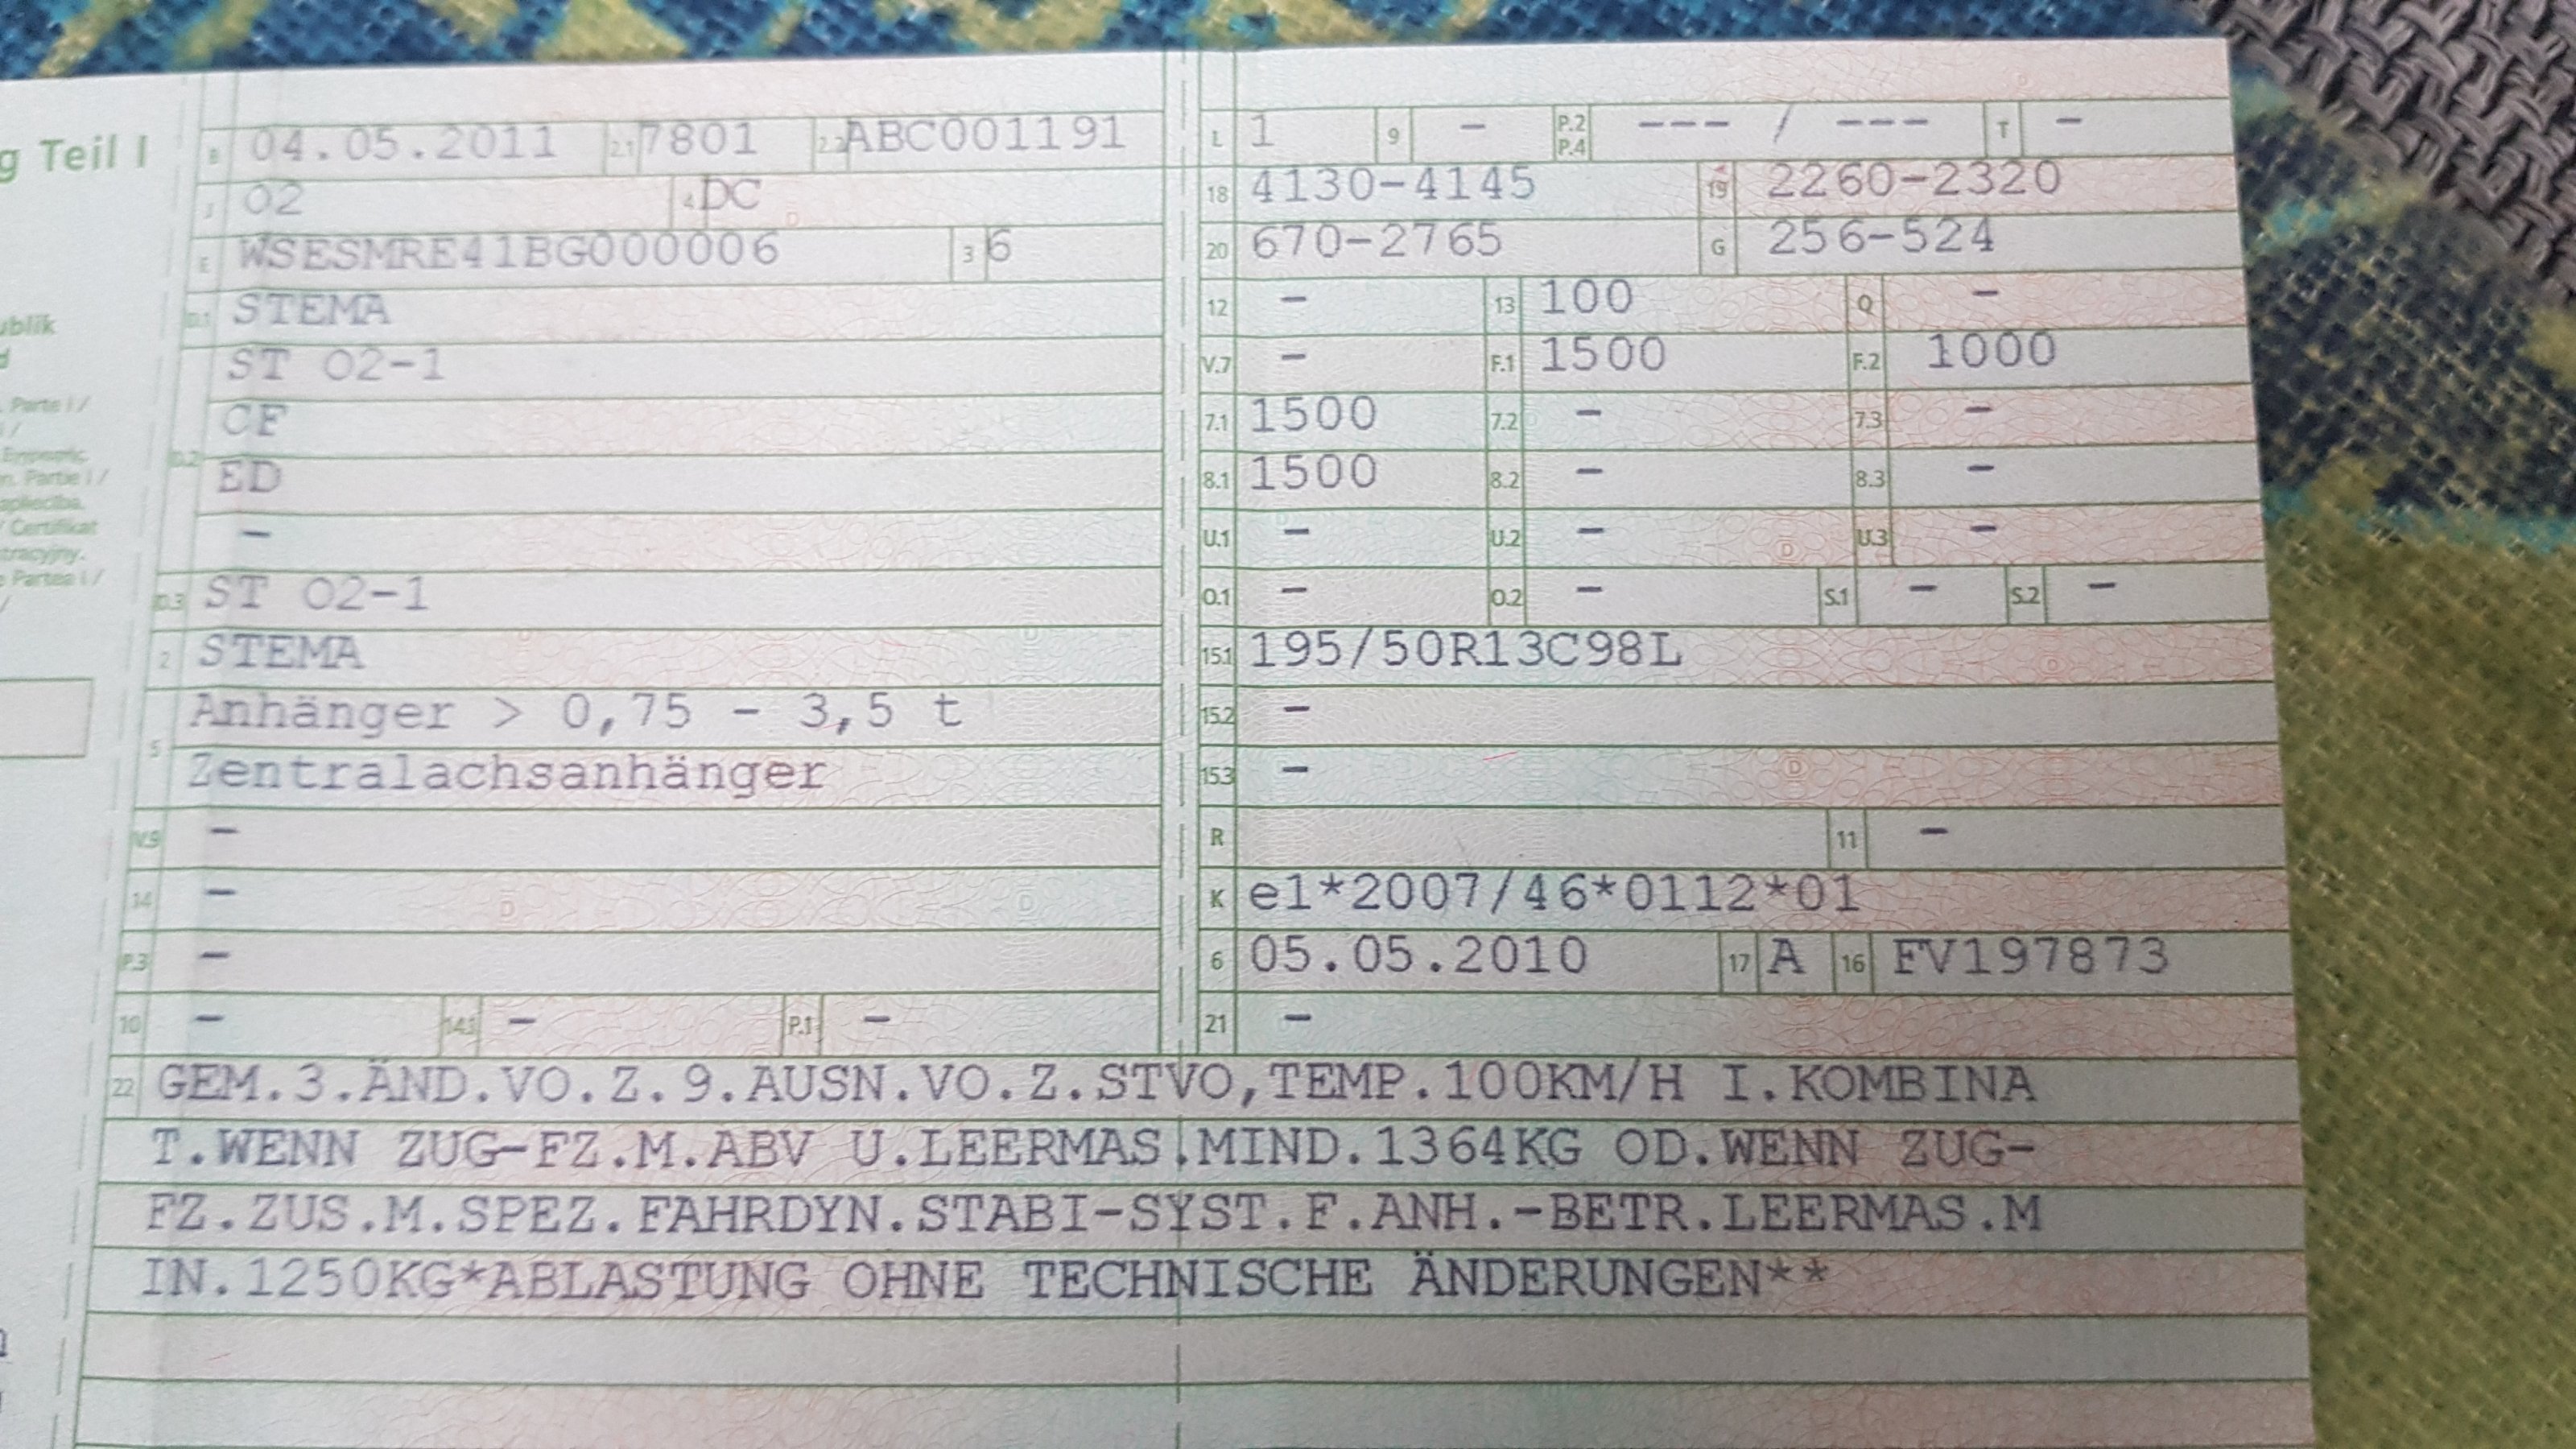 g Teil I
ublik
d
. Parte I /
n. Partie I /
/ Certifikat
B 04.05.2011 2.1 7801 2.2 ABC001191
J O2 4 DC
E WSESMRE41BG000006 3 6
D.1 STEMA
ST O2-1
CF
D.2
ED
-
D.3 ST O2-1
2 STEMA
Anhänger > 0,75 - 3,5 t
5
Zentralachsanhänger
V.9 -
14 -
P.3 -
10 - 14.1 - P.1 -
L 1 9 - P.2 P.4 --- / --- T -
18 4130-4145 19 2260-2320
20 670-2765 G 256-524
12 - 13 100 Q -
V.7 - F.1 1500 F.2 1000
7.1 1500 7.2 - 7.3 -
8.1 1500 8.2 - 8.3 -
U.1 - U.2 - U.3 -
O.1 - O.2 - S.1 - S.2 -
15.1 195/50R13C98L
15.2 -
15.3 -
R 11 -
K e1*2007/46*0112*01
6 05.05.2010 17 A 16 FV197873
21 -
22 GEM.3.ÄND.VO.Z.9.AUSN.VO.Z.STVO,TEMP.100KM/H I.KOMBINA
T.WENN ZUG-FZ.M.ABV U.LEERMAS.MIND.1364KG OD.WENN ZUG-
FZ.ZUS.M.SPEZ.FAHRDYN.STABI-SYST.F.ANH.-BETR.LEERMAS.M
IN.1250KG*ABLASTUNG OHNE TECHNISCHE ÄNDERUNGEN**